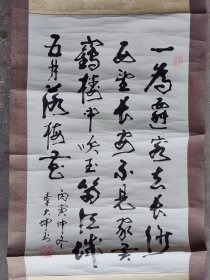 一為遷客去長沙
西望長安不見家黃
鶴樓中吹玉笛江城
五月落梅花
丙寅仲冬